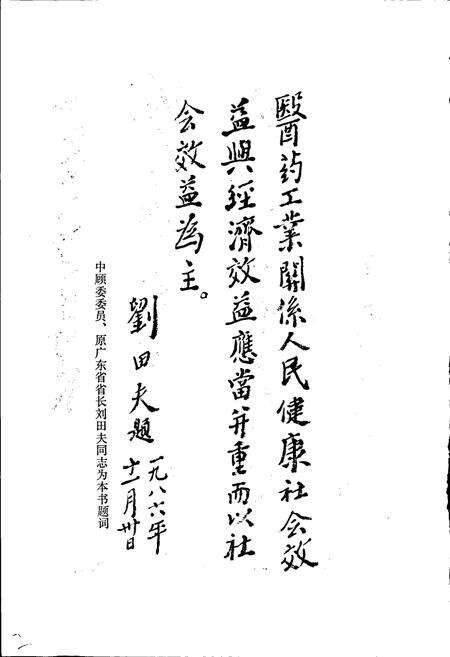 醫药工業關係人民健康社会效
益興經濟效益應當并重而以社
会效益為主。
劉田夫題
一九八六年
十一月卅日
中顾委委员、原广东省省长刘田夫同志为本书题词